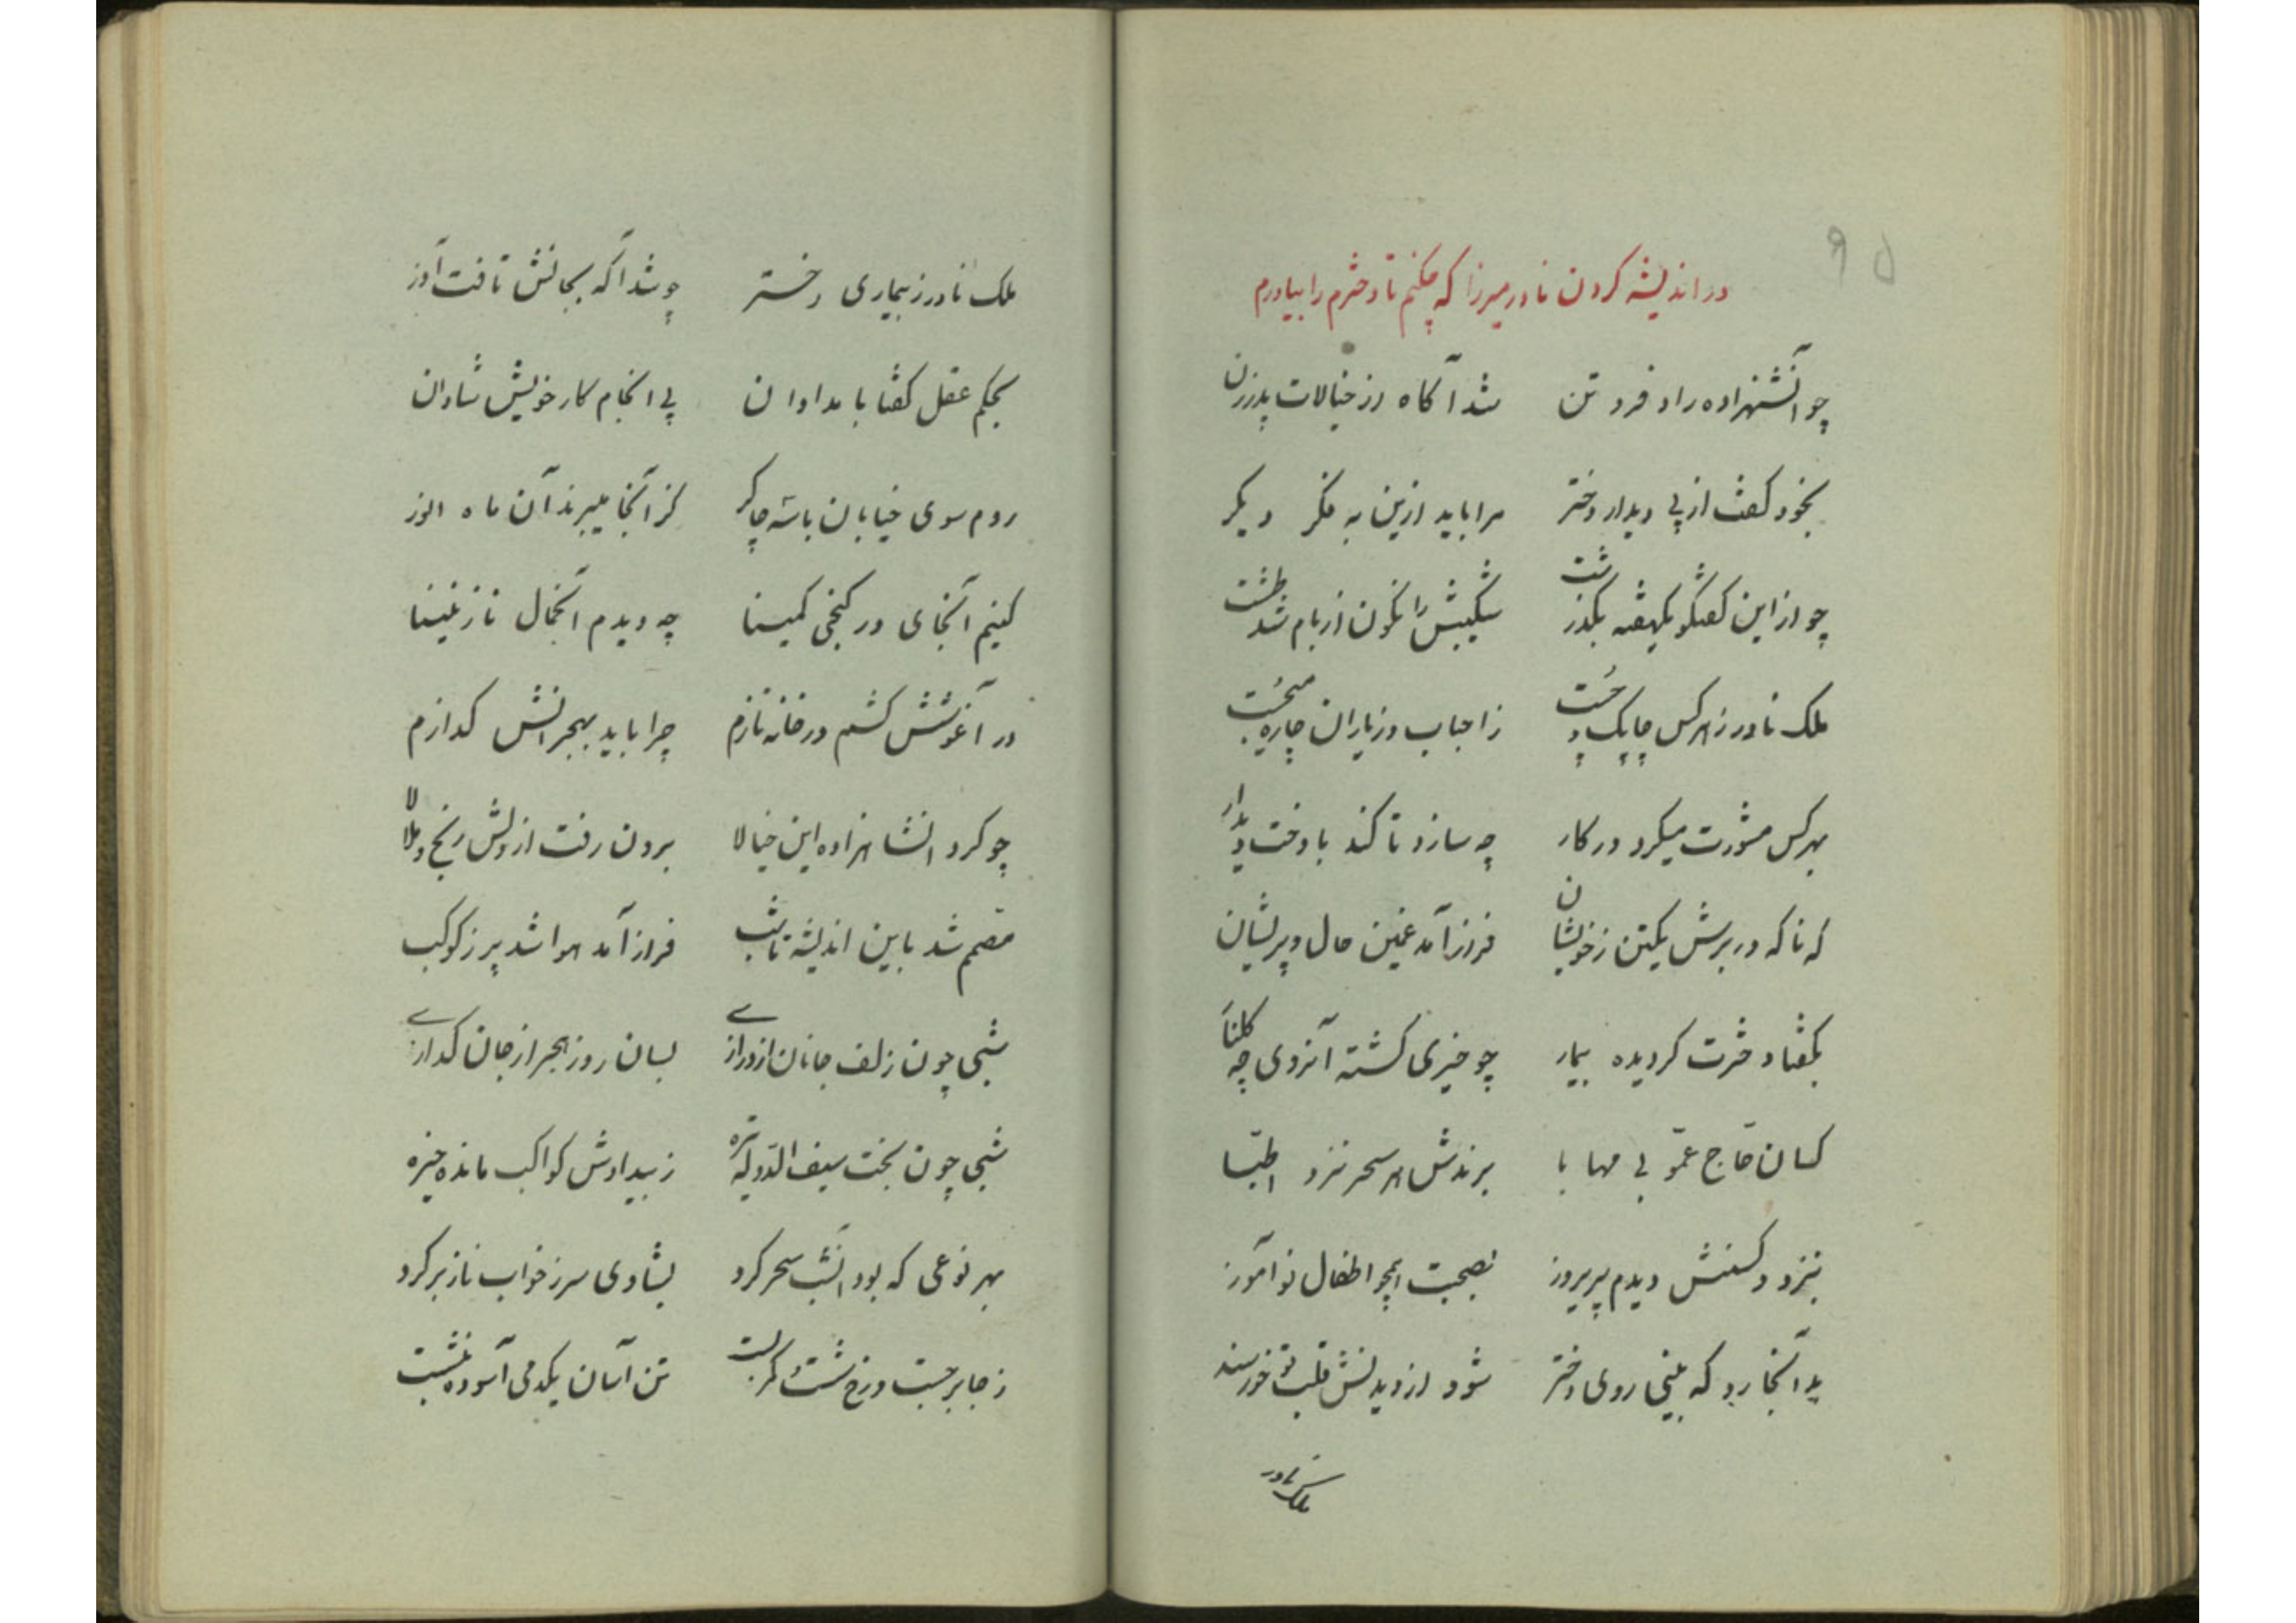 ۹۵
در اندیشه کردن نادر میرزا که چکنم تا دخترم را بیاورم
چو آنشهزاده راد فرد تن شد آگاه از خیالات پدرزن
بخود گفت از پی دیدار دختر مرا باید ازین به فکر دیگر
چو از این گفتگو یکهفته بگذشت شکیبش را نگون از بام شد طشت
ملک نادر ز هرکس چاپک و چست ز احباب و ز یاران چاره میجست
بهرکس مشورت میکرد در کار چه سازد تا کند با دخت دیدار
که ناگه در برش یکتن ز خویشان فراز آمد غمین حال و پریشان
بگفتا دخترت گردیده بیمار چو خیری گشته آنروی چه گلنار
کسان حاج عمو بی مهابا برندش هر سحر نزد اطبا
بنزد دیدم پریروز بصحبت همچو اطفال نوآموز
بدآنجا رو که بینی روی دختر شود از دیدنش قلب تو خورسند
ملک نادر
ملک نادر ز بیماری دختر چو شد آگه بجانش تافت آذر
بحکم عقل گفتا بامدادان پی انجام کار خویش شادان
روم سوی خیابان باسه چاکر کز آنجا میبرند آن ماه انور
کنیم آنجای در کنجی کمینا چه دیدم آنجمال نازنینا
در آغوشش کشم در خانه تازم چرا باید بهجرانش گدازم
چو کرد انشاهزاده این خیالا برون رفت از دلش رنج و ملالا
مصمم شد باین اندیشه تا شب فراز آمد هوا شد پر ز کوکب
شبی چون زلف جانان از درازی بسان روز هجر از جان گدازی
شبی چون بخت سیف الدوله تیره ز بیدادش کواکب مانده خیره
بهر نوعی که بود آنشب سحر کرد بشادی سر ز خواب ناز بر کرد
ز جا برجست و رخ شست و کمر بست تن آسان یکدمی آسوده ننشست